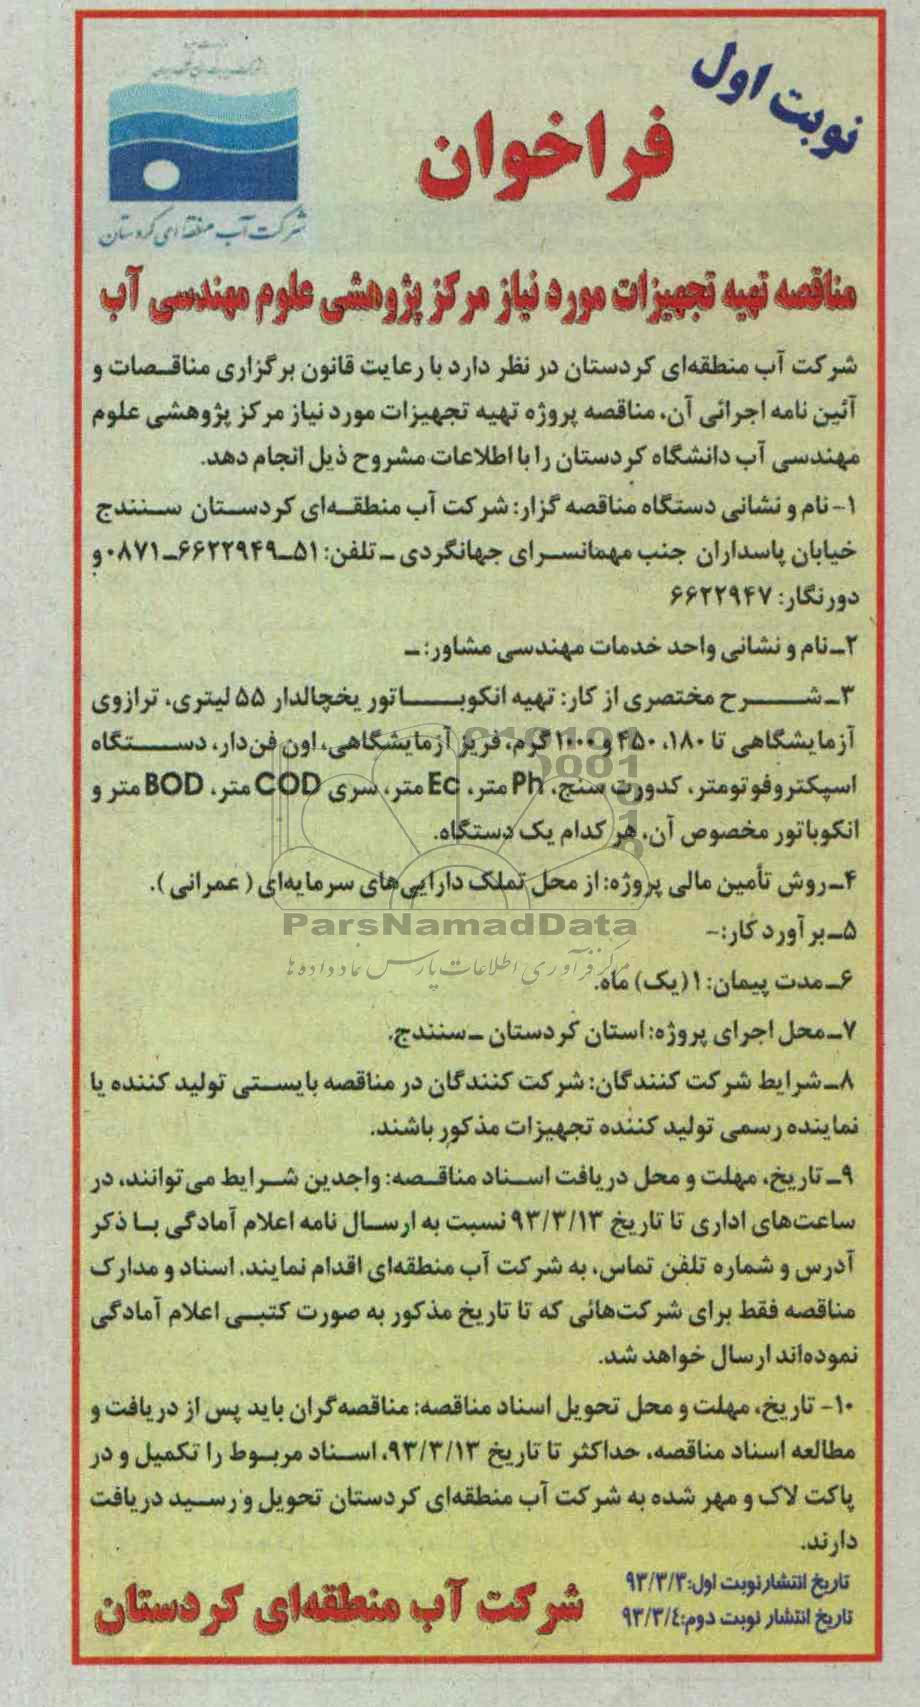 نوبت اول
فراخوان
شرکت آب منطقه‌ای کردستان
مناقصه تهیه تجهیزات مورد نیاز مرکز پژوهشی علوم مهندسی آب
شرکت آب منطقه‌ای کردستان در نظر دارد با رعایت قانون برگزاری مناقصات و
آئین نامه اجرائی آن، مناقصه پروژه تهیه تجهیزات مورد نیاز مرکز پژوهشی علوم
مهندسی آب دانشگاه کردستان را با اطلاعات مشروح ذیل انجام دهد.
۱- نام و نشانی دستگاه مناقصه گزار: شرکت آب منطقه‌ای کردستان سنندج
خیابان پاسداران جنب مهمانسرای جهانگردی ـ تلفن: ۵۱ـ۶۶۲۲۹۴۹ـ۰۸۷۱ و
دورنگار: ۶۶۲۲۹۴۷
۲ـ نام و نشانی واحد خدمات مهندسی مشاور: ـ
۳ـ شرح مختصری از کار: تهیه انکوباتور یخچالدار ۵۵ لیتری، ترازوی
آزمایشگاهی تا ۱۸۰، ۴۵۰ و ۱۰۰۰ گرم، فریز آزمایشگاهی، اون فن‌دار، دستگاه
اسپکتروفوتومتر، کدورت سنج، Ph متر، Ec متر، سری COD متر، BOD متر و
انکوباتور مخصوص آن، هر کدام یک دستگاه.
۴ـ روش تأمین مالی پروژه: از محل تملک دارایی‌های سرمایه‌ای ( عمرانی ).
ParsNamadData
۵ـ برآورد کار:-
مرکز فرآوری اطلاعات پارس نماد داده ها
۶ـ مدت پیمان: ۱ (یک) ماه.
۷ـ محل اجرای پروژه: استان کردستان ـ سنندج.
۸ـ شرایط شرکت کنندگان: شرکت کنندگان در مناقصه بایستی تولید کننده یا
نماینده رسمی تولید کننده تجهیزات مذکور باشند.
۹ـ تاریخ، مهلت و محل دریافت اسناد مناقصه: واجدین شرایط می‌توانند، در
ساعت‌های اداری تا تاریخ ۹۳/۳/۱۳ نسبت به ارسال نامه اعلام آمادگی با ذکر
آدرس و شماره تلفن تماس، به شرکت آب منطقه‌ای اقدام نمایند. اسناد و مدارک
مناقصه فقط برای شرکت‌هائی که تا تاریخ مذکور به صورت کتبی اعلام آمادگی
نموده‌اند ارسال خواهد شد.
۱۰- تاریخ، مهلت و محل تحویل اسناد مناقصه: مناقصه‌گران باید پس از دریافت و
مطالعه اسناد مناقصه، حداکثر تا تاریخ ۹۳/۳/۱۳، اسناد مربوط را تکمیل و در
پاکت لاک و مهر شده به شرکت آب منطقه‌ای کردستان تحویل و رسید دریافت
دارند.
تاریخ انتشار نوبت اول:۹۳/۳/۳
تاریخ انتشار نوبت دوم:۹۳/۳/٤
شرکت آب منطقه‌ای کردستان